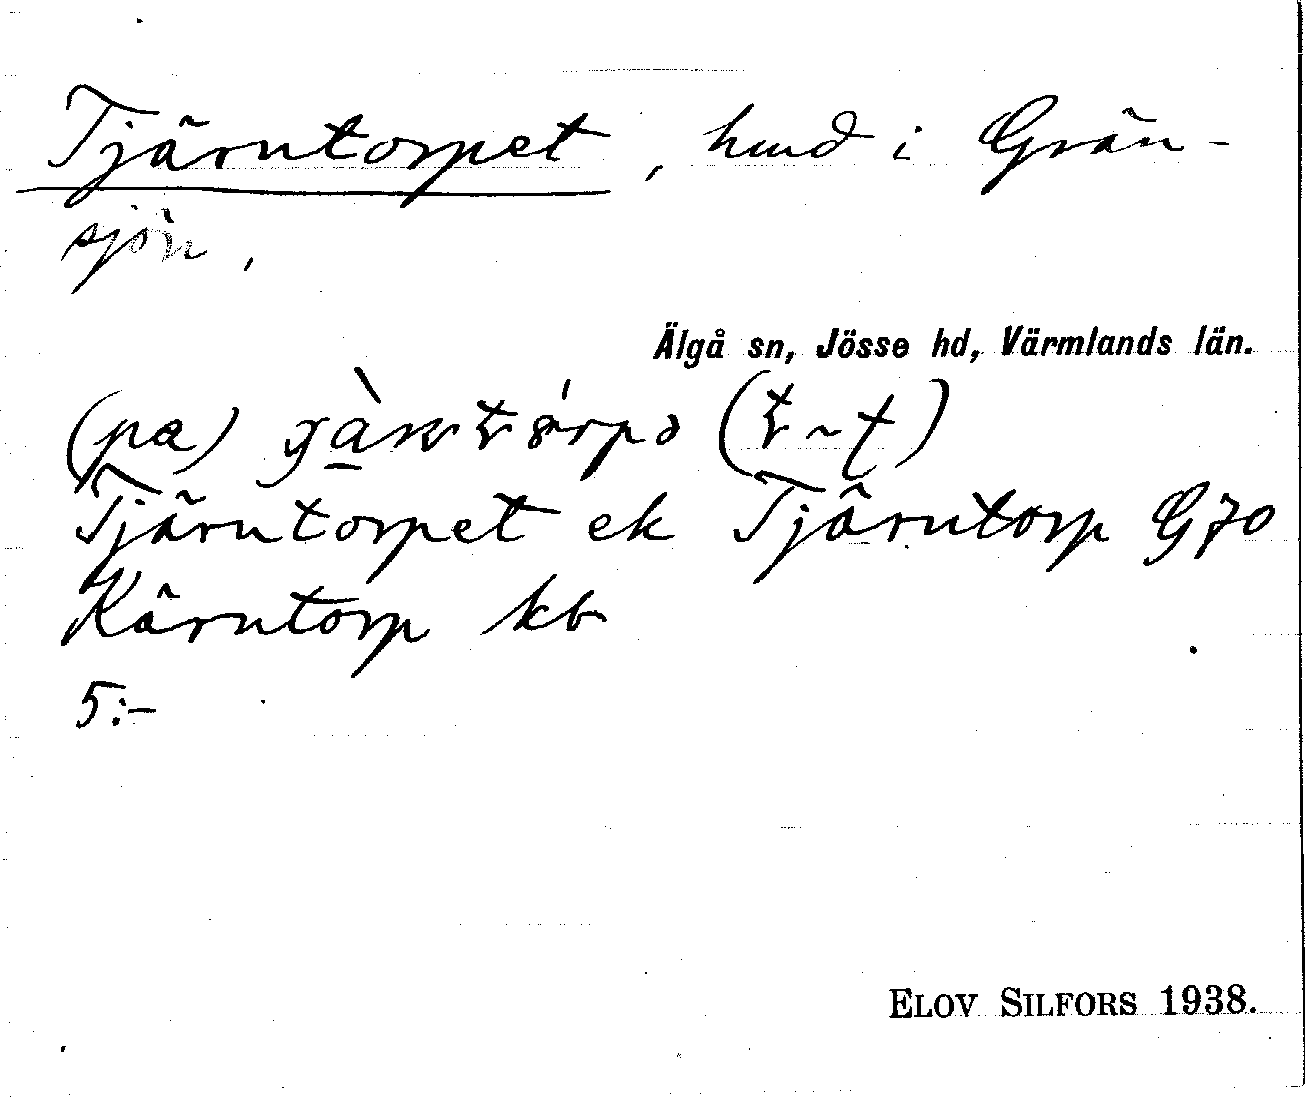 Tjärntorpet, hmd i Grän-
sjön,
Älgå sn, Jösse hd, Värmlands län.
(pa)
Tjärntorpet ek Tjärntorp G70
Kärntorp kb
5:-
ELOV SILFORS 1938.